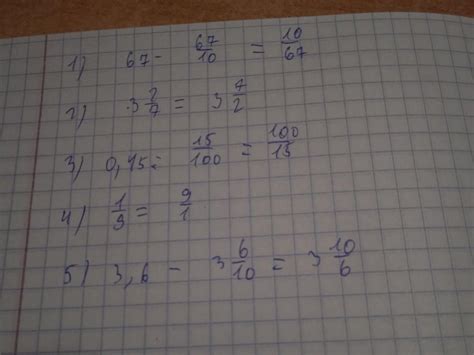 1) 67 - 67/10 = 10/67
2) 3 2/7 = 3 7/2
3) 0,15 = 15/100 = 100/15
4) 1/9 = 9/1
5) 3,6 - 3 6/10 = 3 10/6